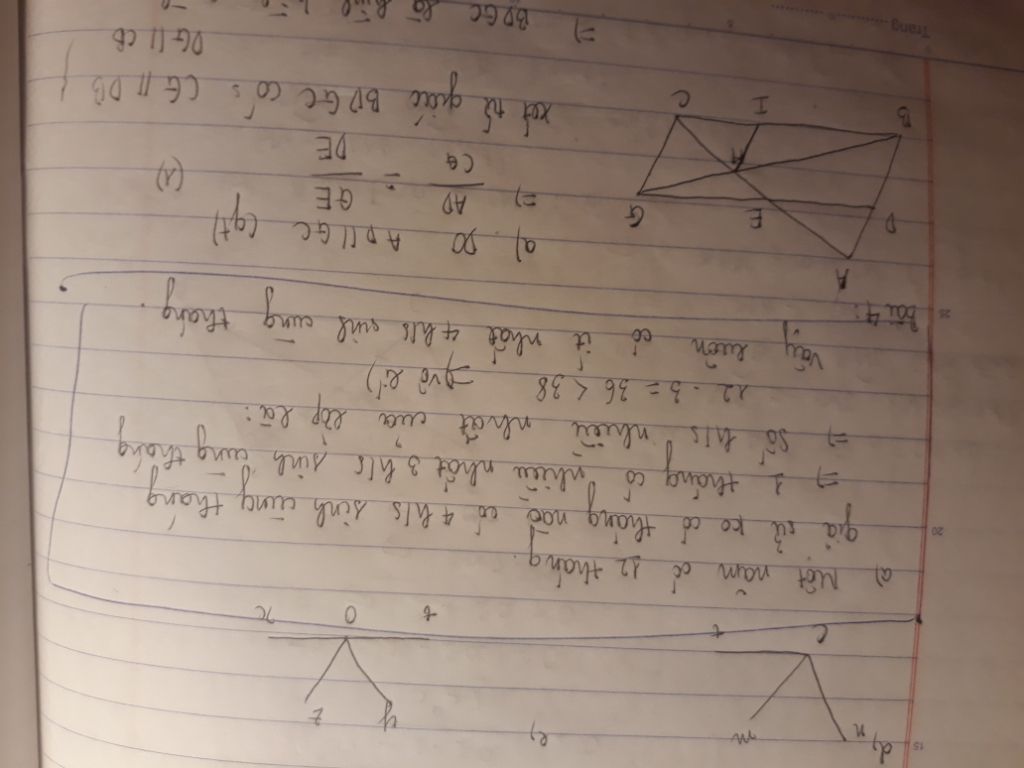 15
d, n m e, y z
C t t O x
a) Một năm có 12 tháng.
giả sử ko có tháng nào có 4 h/s sinh cùng tháng
20
=> 1 tháng có nhiều nhất 3 h/s sinh cùng tháng
=> Số h/s nhiều nhất của lớp là:
12 . 3 = 36 < 38 => (vô lí)
Vậy luôn có ít nhất 4 h/s sinh cùng tháng.
25
Bài 4:
A
a) Do AD // GC (gt)
D E G
=> AD/CG = GE/DE (1)
H
B I C
xét tứ giác BDGC có: CG // DB
DG // CB
=> BDGC là hình
Trang